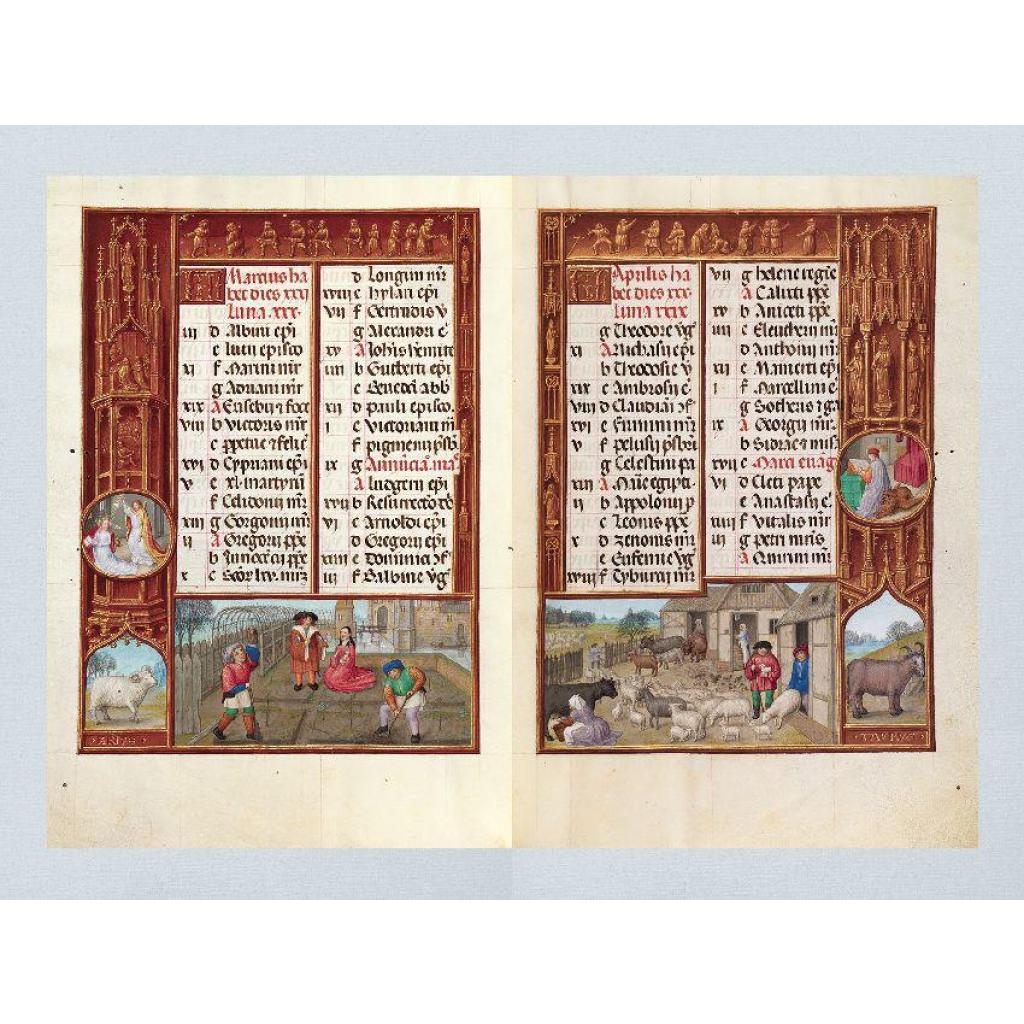 Marcius ha
bet dies xxxj
Luna .xxx.
iii d Albini ep̄i
e Lucij episco
xi f Marini mr̄
g Adriani mr̄
xix A Eusebij &
viii b Victoris mr̄
c ppetue & felic̄
xvi d Cypriani ep̄i
v e xl martyrū
f Celidonij mr̄
xiii g Gorgonij mr̄
ii A Gregorij pp̄e
b Innocēcij pp̄e
x c
d Longini mr̄
xviii e hylarij ep̄i
vii f Gertrudis v
g Alexandri e
xv A Ioh̄is hemite
iiii b Gutberti ep̄i
c Benedci abb
xii d pauli episco.
i e Victoriani mr̄
f pigmenij
ix g Annūcia. ma
A ludgeri ep̄i
xvii b Resurrectō
vi c Arnoldi ep̄i
d Gregorij ep̄i
xiiii e Dominici
iii f Balbine v̄g
ARIES
Aprilis ha
bet dies xxx.
Luna xxix
g Theodore v̄g
xi A Richarij ep̄i
b Theodosie v̄
xix c Ambrosij e
viii d Claudiani
xvi e mr̄
v f pelusij
g Celestini pa
xiii A Marie egipti.
ii b Appolonij p
c Leonis pp̄e
x d zenonis mr̄
e Eufemie v̄g
xviii f Tyburcij mr̄
vii g helene regīe
A Calixti pp̄e
xv b Aniceti pp̄e
iiii c Eleutherij mr̄
d Anthonij mr̄
xii e Mamerti ep̄i
i f Marcellini e
g Sotheris & ga
ix A Georgij mr̄
b Sidrac &
xvii c Marci euāg
vi d Cleti pape
e Anastasij e
xiiii f Vitalis mr̄
iii g petri
A Quirini mr̄
TAVRVS